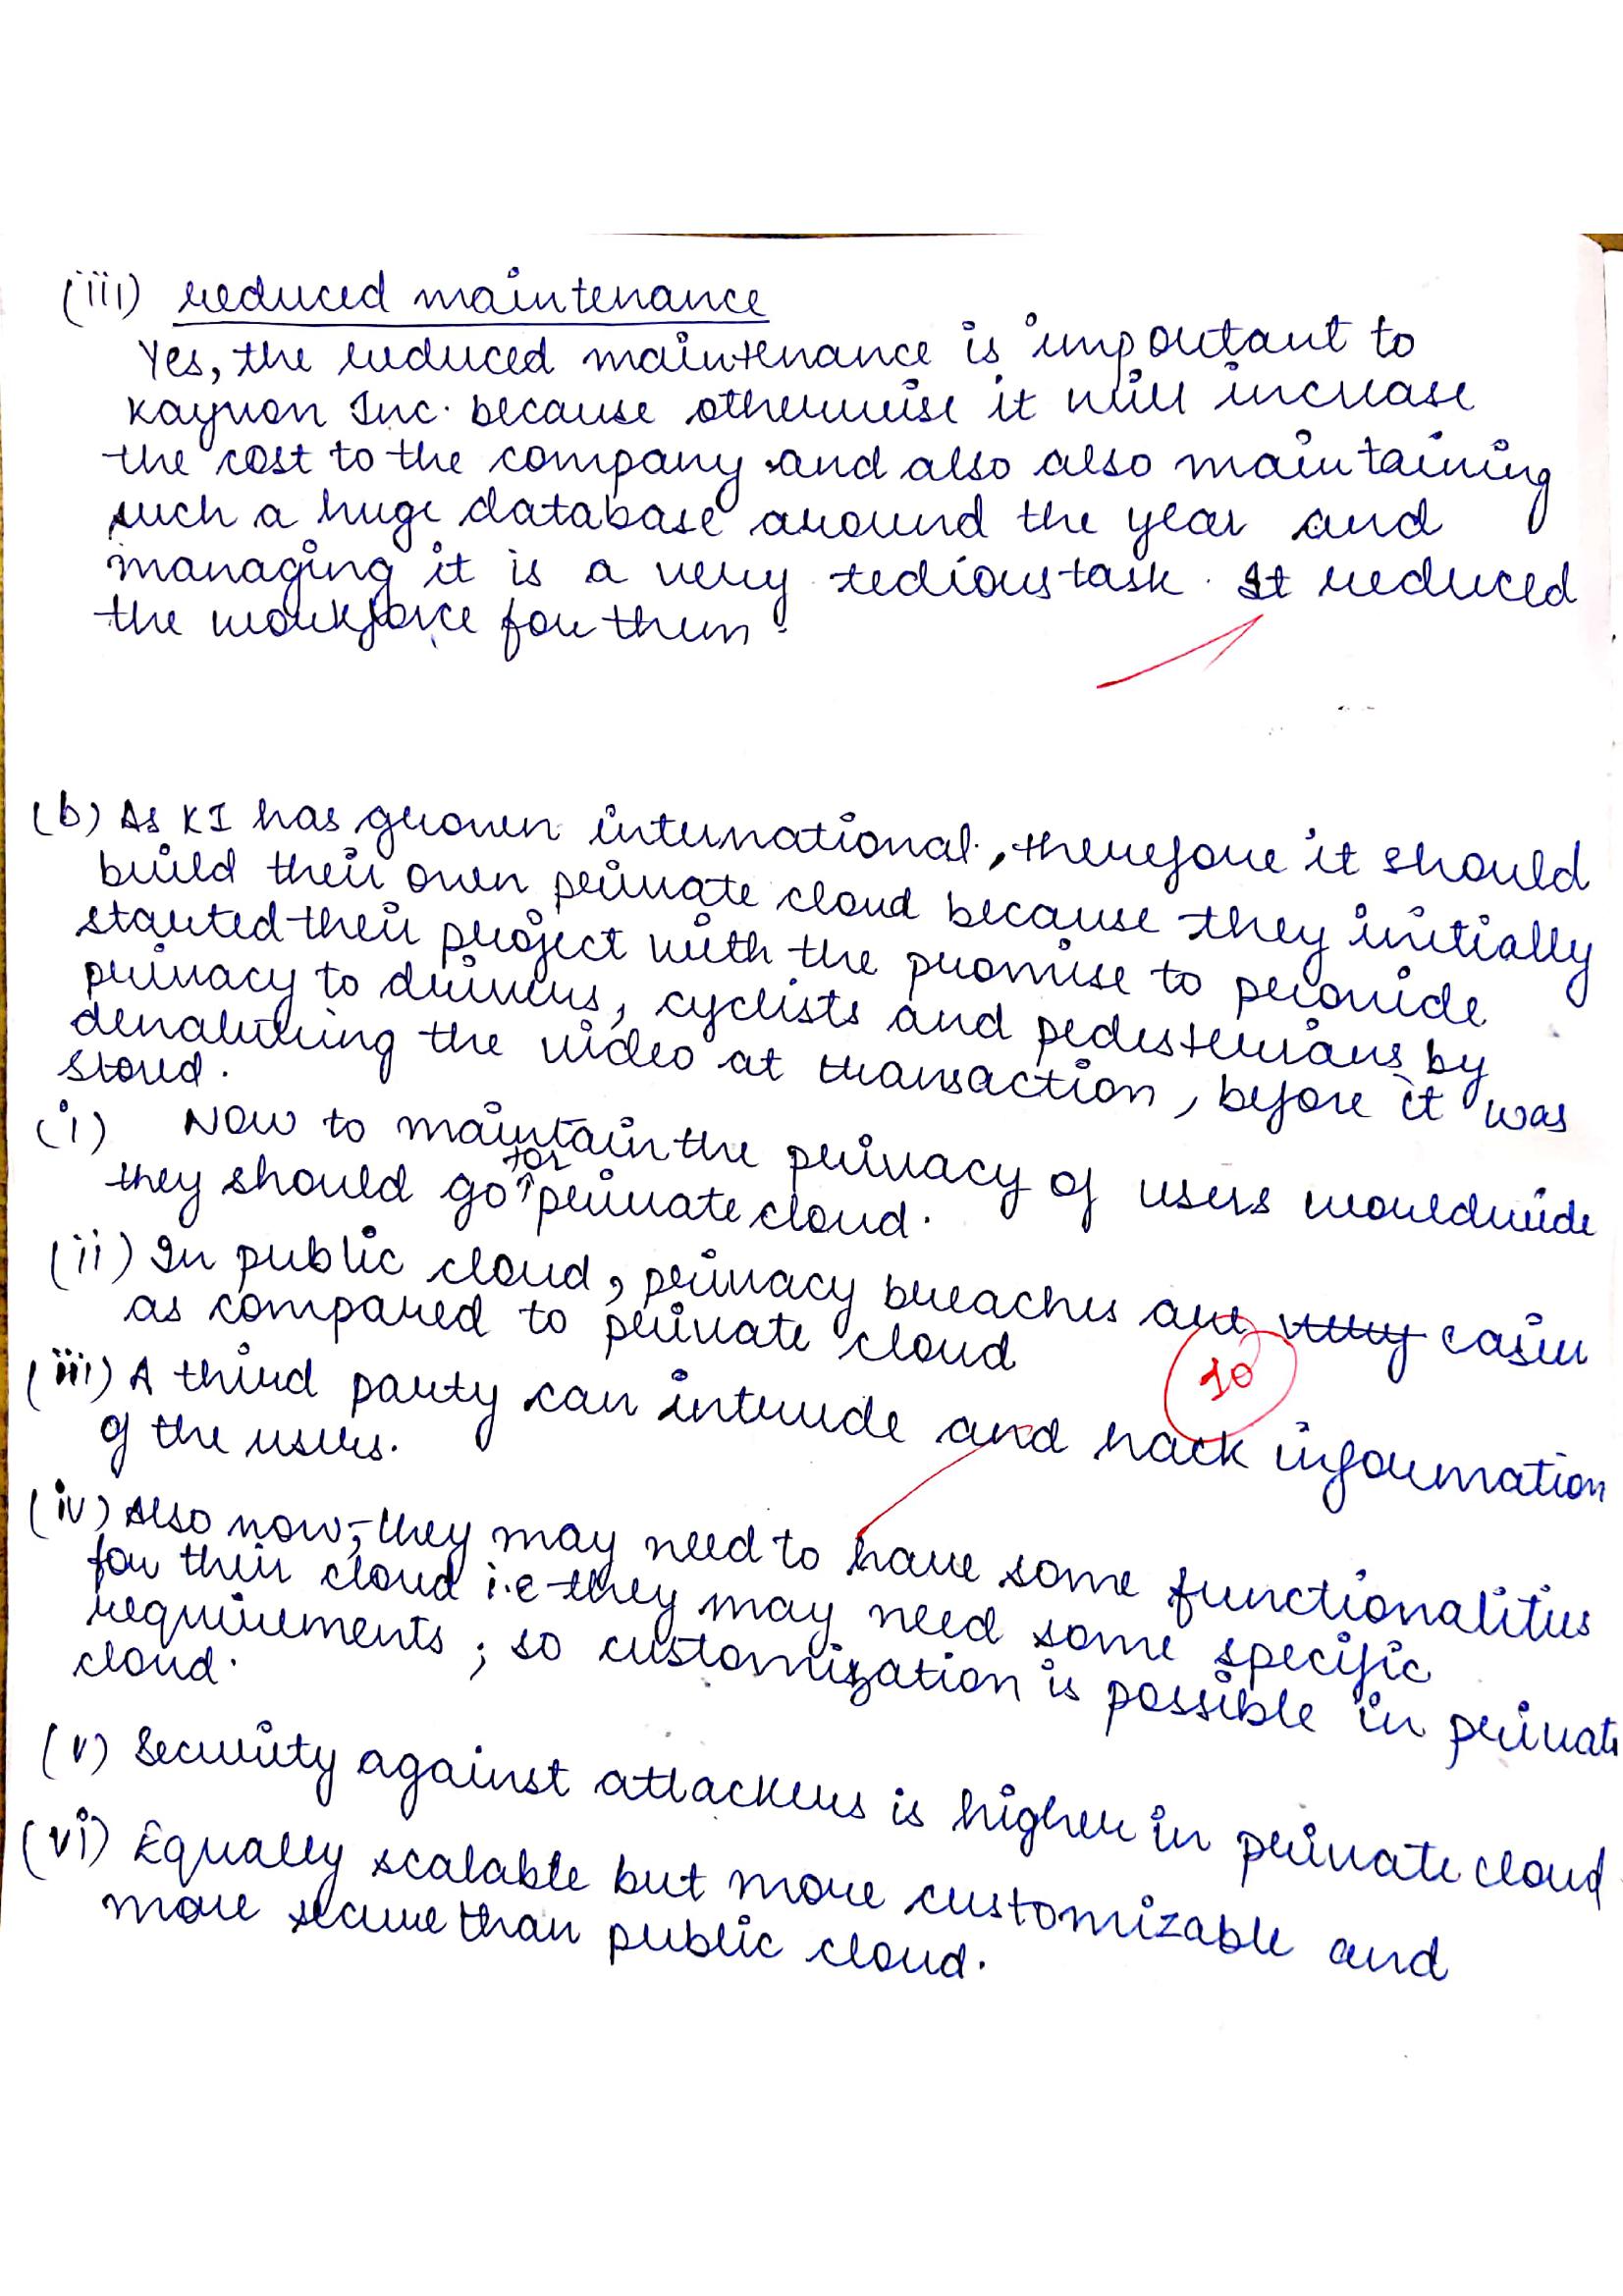 (iii) reduced maintenance
Yes, the reduced maintenance is important to
Inc. because otherwise it will increase
the cost to the company and also also maintaining
such a huge database around the year and
managing it is a very tedious task. It reduced
the workforce for them.
(b) As KI has grown international, therefore it should
build their own private cloud because they initially
started their project with the promise to provide
privacy to drivers, cyclists and pedesterians by
the video at transaction, before it was
stored.
(i) Now to maintain the privacy of users worldwide
they should go for private cloud.
(ii) In public cloud, privacy breaches are very easier
as compared to private cloud
(iii) A third party can intrude and hack information
of the users.
10
(iv) Also now, they may need to have some functionalities
for their cloud i.e they may need some specific
requirements ; so customization is possible in private
cloud.
(v) Security against attackers is higher in private cloud
(vi) Equally scalable but more customizable and
more secure than public cloud.